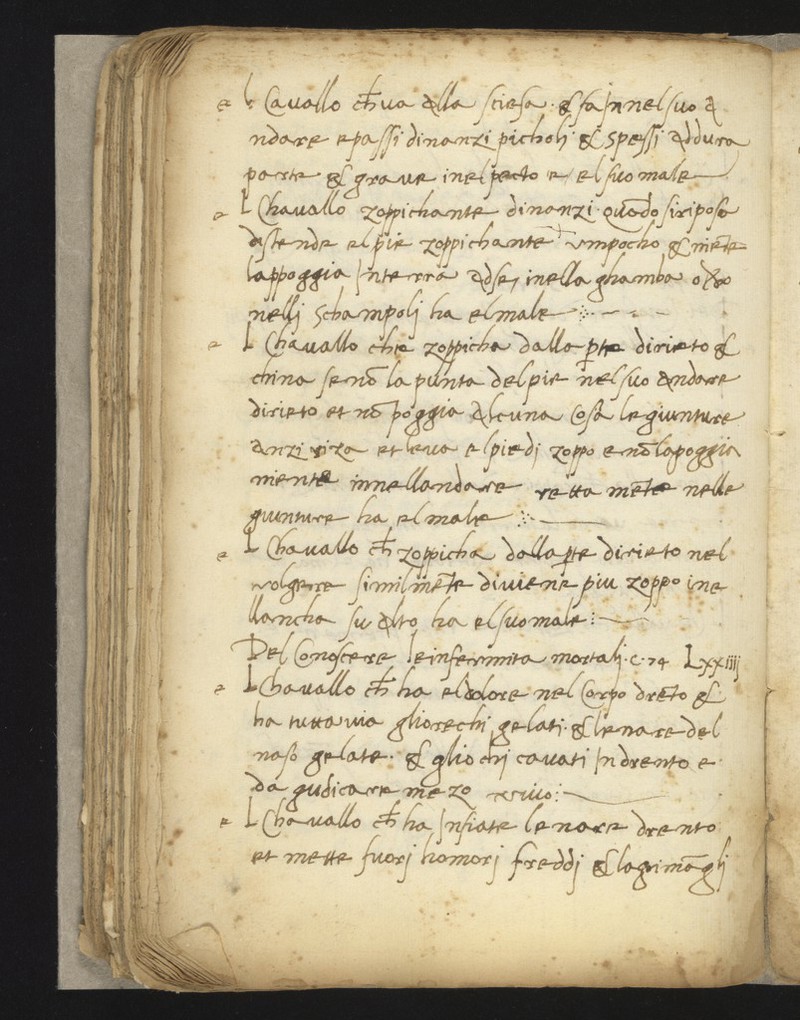 e L Cavallo ch̄ va alla sciesa · & fa Innel suo a
ndare e passi dinanzi picholi & spessi & dura
parte & grave inel pecto e / el suo male
e L Chavallo zoppichante dinanzi quādo si riposa
distende el pie zoppichante umpocho & mēte
lappoggia Interra adse, inella ghamba o vero
nellj schampolj ha el male
e L Chavallo che zoppicha dalla pte dirieto &
china se nō la punta del pie nel suo andare
dirieto et nō poggia alcuna cosa le giunture
anzi riza et leva el piedj zoppo e nō lapoggia
niente innellandare retta mēte nelle
giunture ha el male
e L Chavallo ch̄ zoppicha dalla pte dirieto nel
volgere similmēte diviene piu zoppo ine
llancha su alto ha el suo male
Del Conoscere le infermita mortalj · c · 74 Lxxiiij
e L Chavallo ch̄ ha el dolore nel Corpo drēto &
ha tutta via gliorechi gelati · & lenare del
naso gelate · & gliochj cavati Indrento e
da gudicarre mezo vivo
e L Chavallo ch̄ ha Infiate lenare drento
et mette fuorj homorj freddj & lagrimāglj